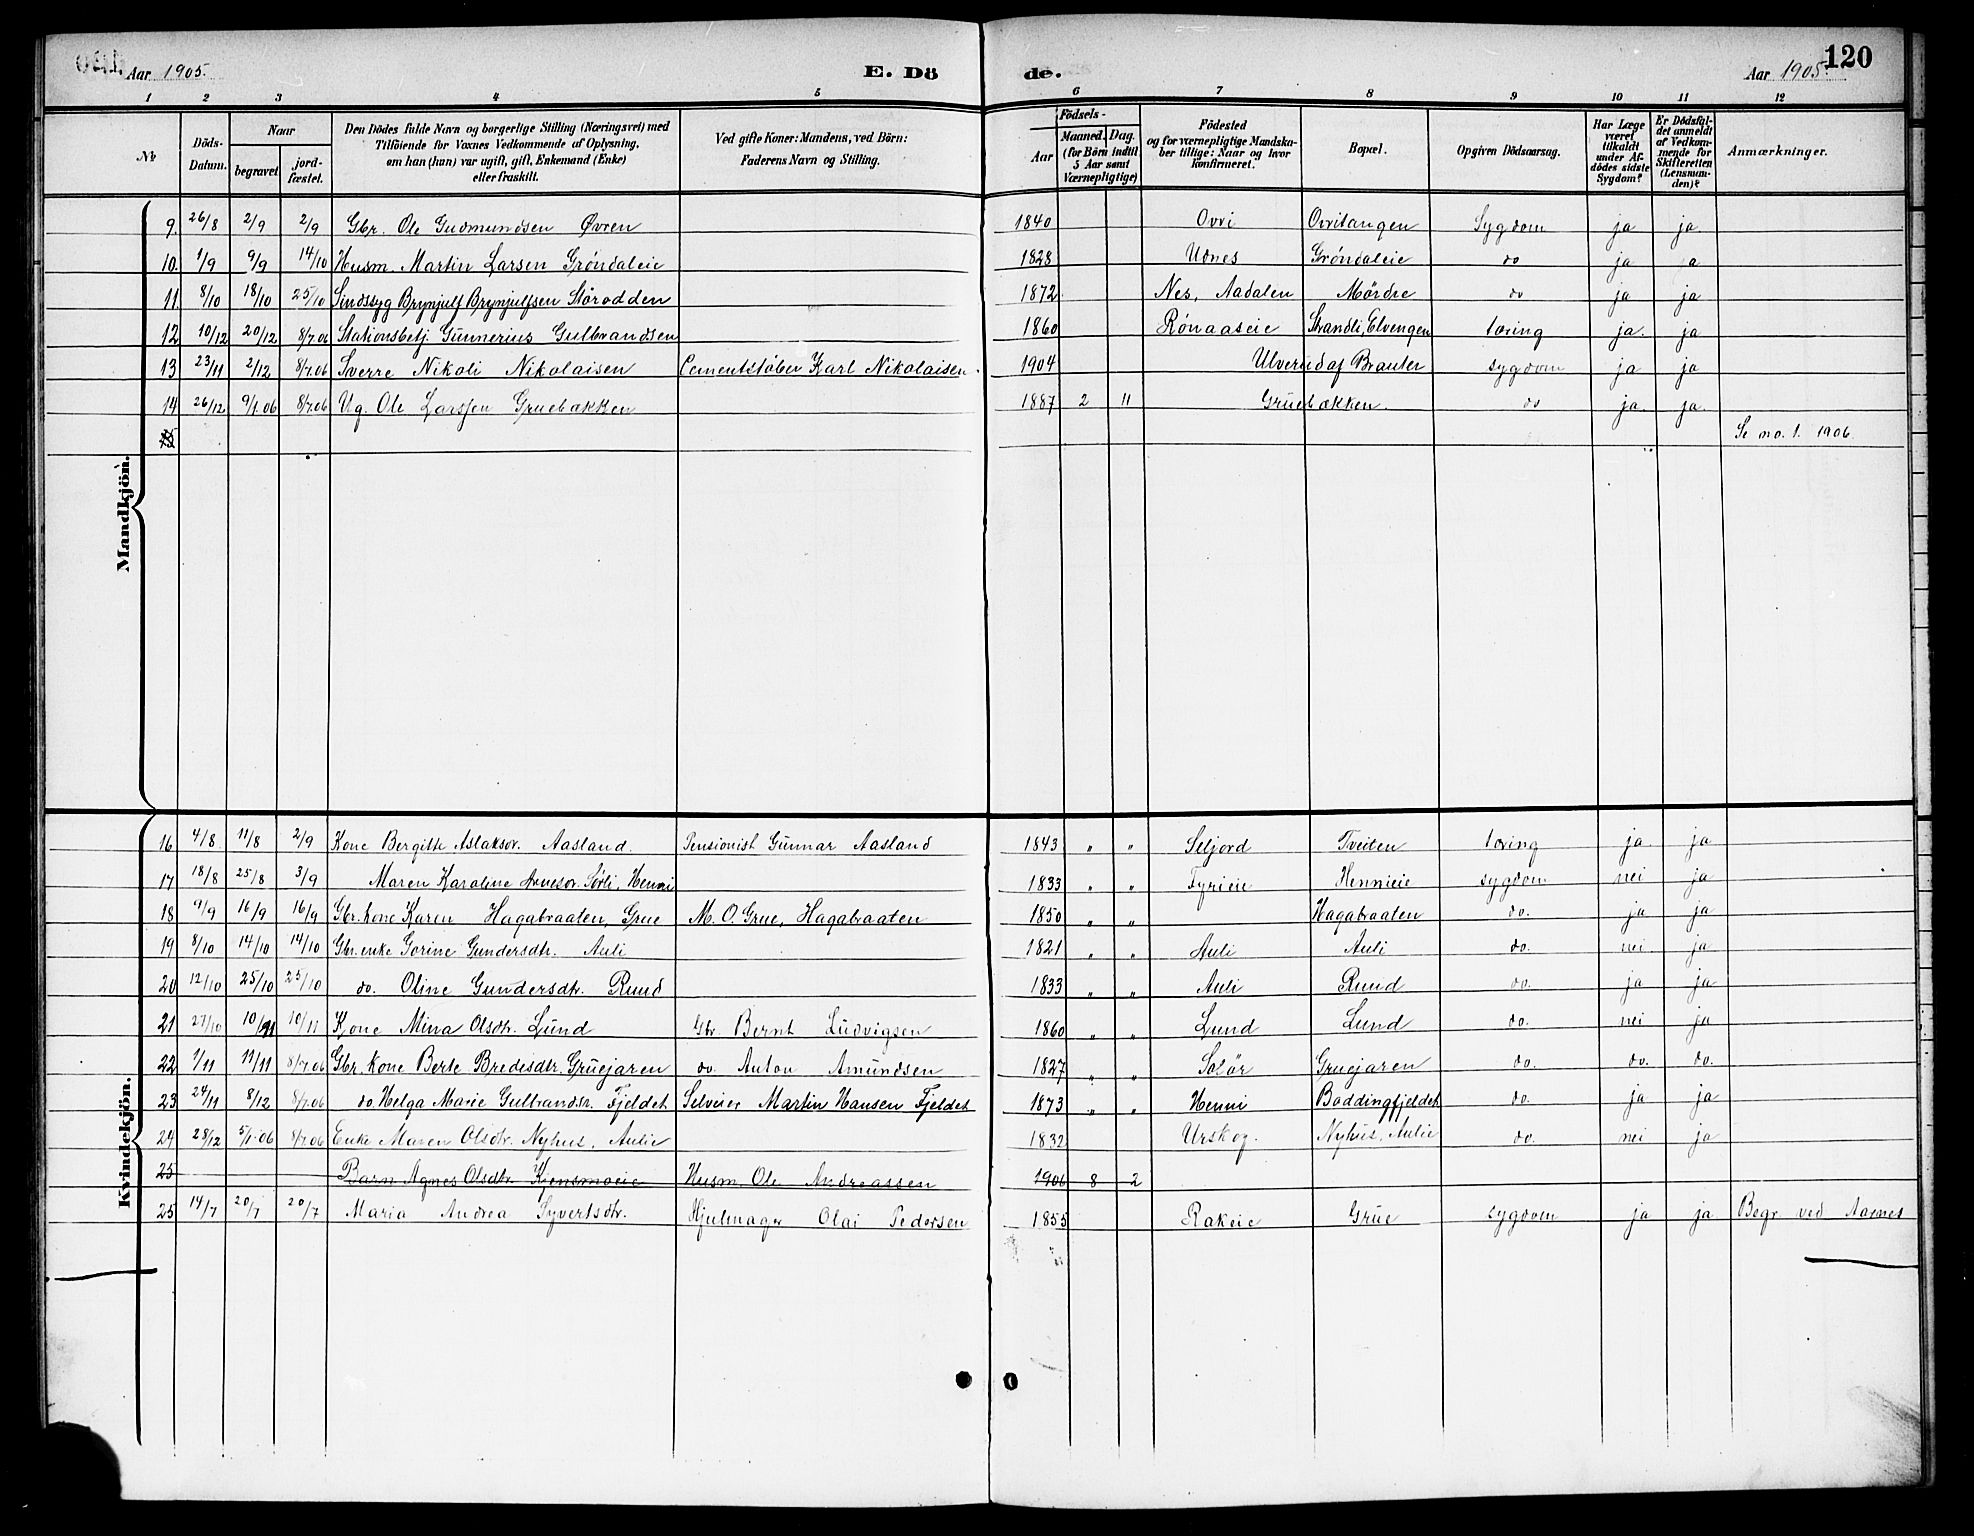 Aar 1905. E. Dö de. Aar 1905. 120
1 2 3 4 5 6 7 8 9 10 11 12
№ Döds-Datum. Naar begravet jord-fæstet. Den Dödes fulde Navn og borgerlige Stilling (Næringsvei) med Tilföiende for Voxnes Vedkommende af Oplysning, om han (hun) var ugift, gift, Enkemand (Enke) eller fraskilt. Ved gifte Koner: Mandens, ved Börn: Faderens Navn og Stilling. Födsels- Aar Maaned. Dag. (for Börn indtil 5 Aar samt Værnepligtige) Födested og for værnepligtige Mandskaber tillige: Naar og hvor konfirmeret. Bopæl. Opgiven Dödsaarsag. Har Læge været tilkaldt under Afdödes sidste Sygdom? Er Dödsfaldet anmeldt af Vedkommende for Skifteretten (Lensmanden)? Anmærkninger.
Mandkjön.
9. 26/8 2/9 2/9 Gbr. Ole Gudmundsen Øvren 1840 Ovri Ovritangen Sygdom ja ja
10. 1/9 9/9 14/10 Husm. Martin Larsen Grøndaleie 1828 Udnes Grøndaleie do ja ja
11. 8/10 18/10 25/10 Sindssyg Brynjulf Brynjulfsen Størodden 1872 Nes, Aadalen Mørdre do ja ja
12 10/12 20/12 8/7.06 Stationsbetj. Gunnerius Gulbrandsen 1860 Rønaaseie Strandli, Elvengen tæring ja. ja
13 23/11 2/12 8/7.06 Sverre Nikoli Nikolaisen Cementstøber Karl Nikolaisen. 1904 Ulverud af Brauter sygdom ja ja
14 26/12 9/1.06 8/7.06 Ug. Ole Larssen Gruebakken 1887 2 11 Gruebækken. do ja ja.
15 Se no. 1. 1906.
Kvindekjön.
16 4/8 11/8 2/9 Kone Bergitte Aslaksdr. Aasland. Pensionist Gunnar Aasland 1843 „ „ Seljord Tveiten tæring ja ja
17 18/8 25/8 3/9 Maren Karoline Arnesdr. Sørli, Henni 1833 „ „ Fyrieie Hennieie sygdom nei ja
18 9/9 16/9 16/9 Gbr. kone Karen Hagabraaten, Grue M. O. Grue, Hagabraaten 1850 „ „ Hagabraaten do. ja ja
19 8/10 14/10 14/10 Gbr. enke Gorine Gundersdtr. Auli 1821 „ „ Auli Auli do. nei ja
20 12/10 25/10 25/10 do. Oline Gundersdtr. Ruud 1833 „ „ Auli Ruud do. ja ja
21 27/10 10/11 10/11 Kone Mina Olsdtr. Lund Gbr. Bernt Ludvigsen 1860 „ „ Lund Lund do. nei ja
22 1/11 11/11 8/7.06 Gbr. kone Berte Bredesdtr. Gruejaren do. Anton Amundsen 1827 „ „ Solør Gruejaren do. do. do.
23 24/11 8/12 8/7.06 do. Helga Marie Gulbrandsdr. Fjeldet Selveier Martin Hansen Fjeldet 1873 „ „ Henni Boddingfjeldet do. ja ja
24 28/12 5/1.06 8/7.06 Enke Maren Olsdtr. Nyhus, Aulie 1832 Urskog. Nyhus, Aulie do. nei ja
25 Barn Agnes Olsdtr. Kjensmoeie Husm. Ole Andreassen 1906 8 2
25 14/7 20/7 20/7 Maria Andrea Syvertsdtr. Hjulmager Olai Pedersen 1855 Rakeie Grue sygdom ja ja Begr. ved Aarnes